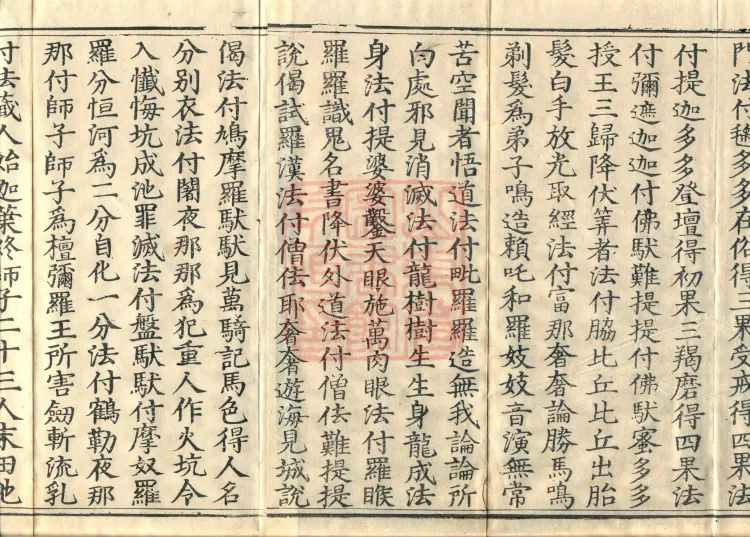 門法付毱多多在俗得三果受戒得四果法
付提迦多多登壇得初果三羯磨得四果法
付彌遮迦迦付佛馱難提提付佛馱蜜多多
授王三歸降伏筭者法付脇比丘比丘出胎
髮白手放光取經法付富那奢奢論勝馬鳴
剃髮為弟子鳴造賴吒和羅妓妓音演無常
苦空聞者悟道法付毗羅羅造無我論論所
向處邪見消滅法付龍樹樹生生身龍成法
身法付提婆婆鑿天眼施萬肉眼法付羅睺
羅羅識鬼名書降伏外道法付僧佉難提提
說偈試羅漢法付僧佉耶奢奢遊海見城說
偈法付鳩摩羅馱馱見萬騎記馬色得人名
分別衣法付闍夜那那為犯重人作火坑令
入懺悔坑成池罪滅法付盤馱馱付摩奴羅
羅分恒河為二分自化一分法付鶴勒夜那
那付師子師子為檀彌羅王所害劒斬流乳
付法藏人始迦葉終師子二十三人末田地